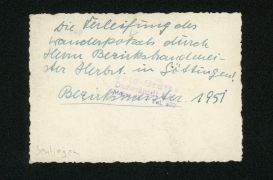 Die Verleihung des
Wanderpokals durch
Herrn Bezirksbandmei-
ster Herbst. in Göttingen!
Bezirksmeister. 1951